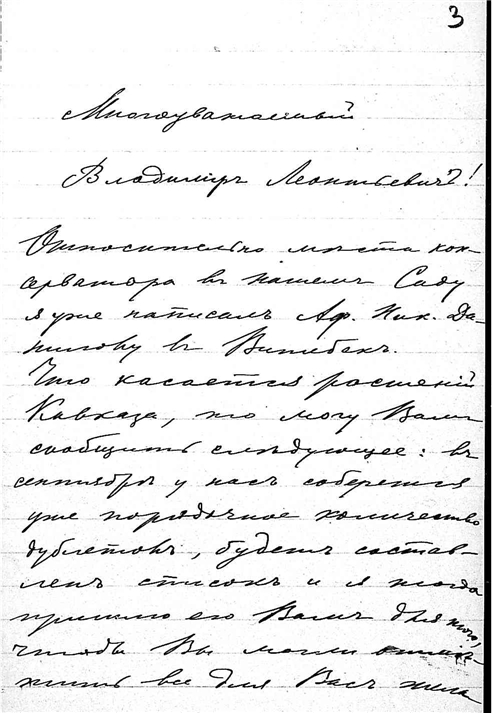 3
Многоуважаемый
Владимiръ Леонтьевичъ!
Относительно мѣста кон-
серватора въ нашемъ Саду
я уже написалъ Аф. Ник. Да-
нилову въ Витебскъ.
Что касается растенiй
Кавказа, то могу Вамъ
сообщить слѣдующее: въ
сентябрѣ у насъ соберется
уже порядочное количество
дублетовъ, будетъ состав-
ленъ списокъ и я тогда
пришлю его Вамъ для того,
чтобы Вы могли
все для Васъ жела